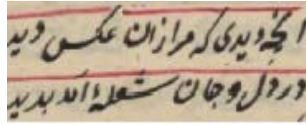 آنچه دیدی که مرازان عکس دید
در دل و جان شعلهٔ آمد بدید